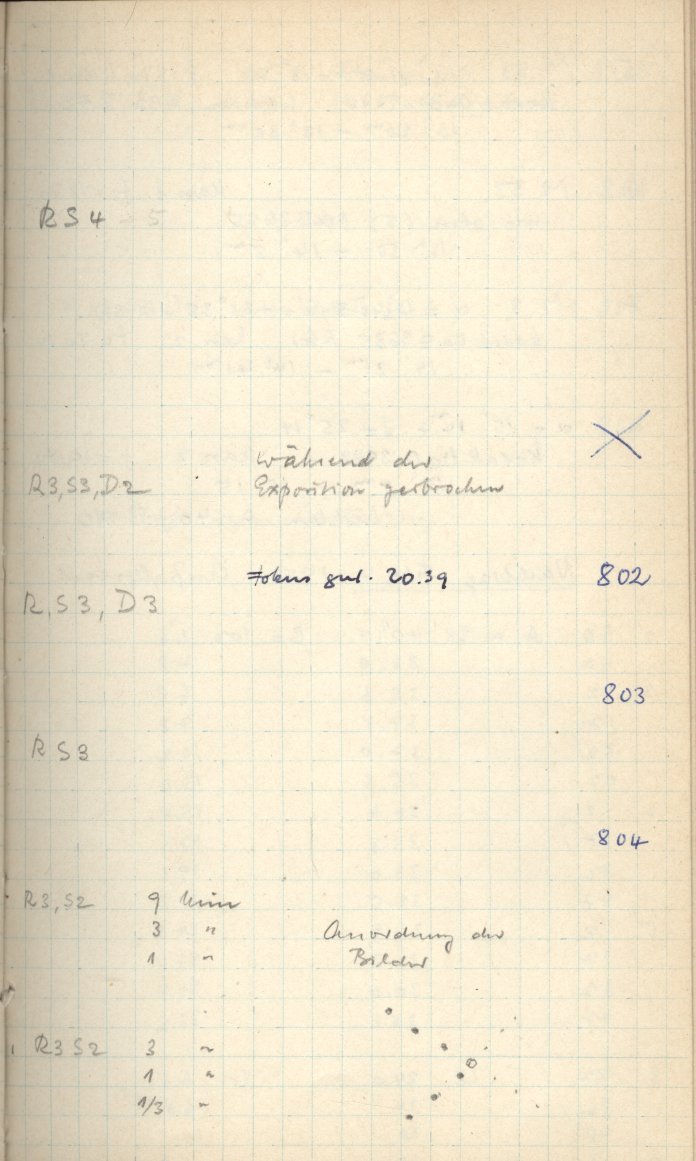 RS4
während der
R3,S3,D2 Exposition zerbrochen
Fokus gut. 20.39 802
R,S3,D3
803
RS3
804
R3,S2 9 Min
3 "
Anordnung der
1 "
Bilder
R3S2 3 "
1 "
1/3 "